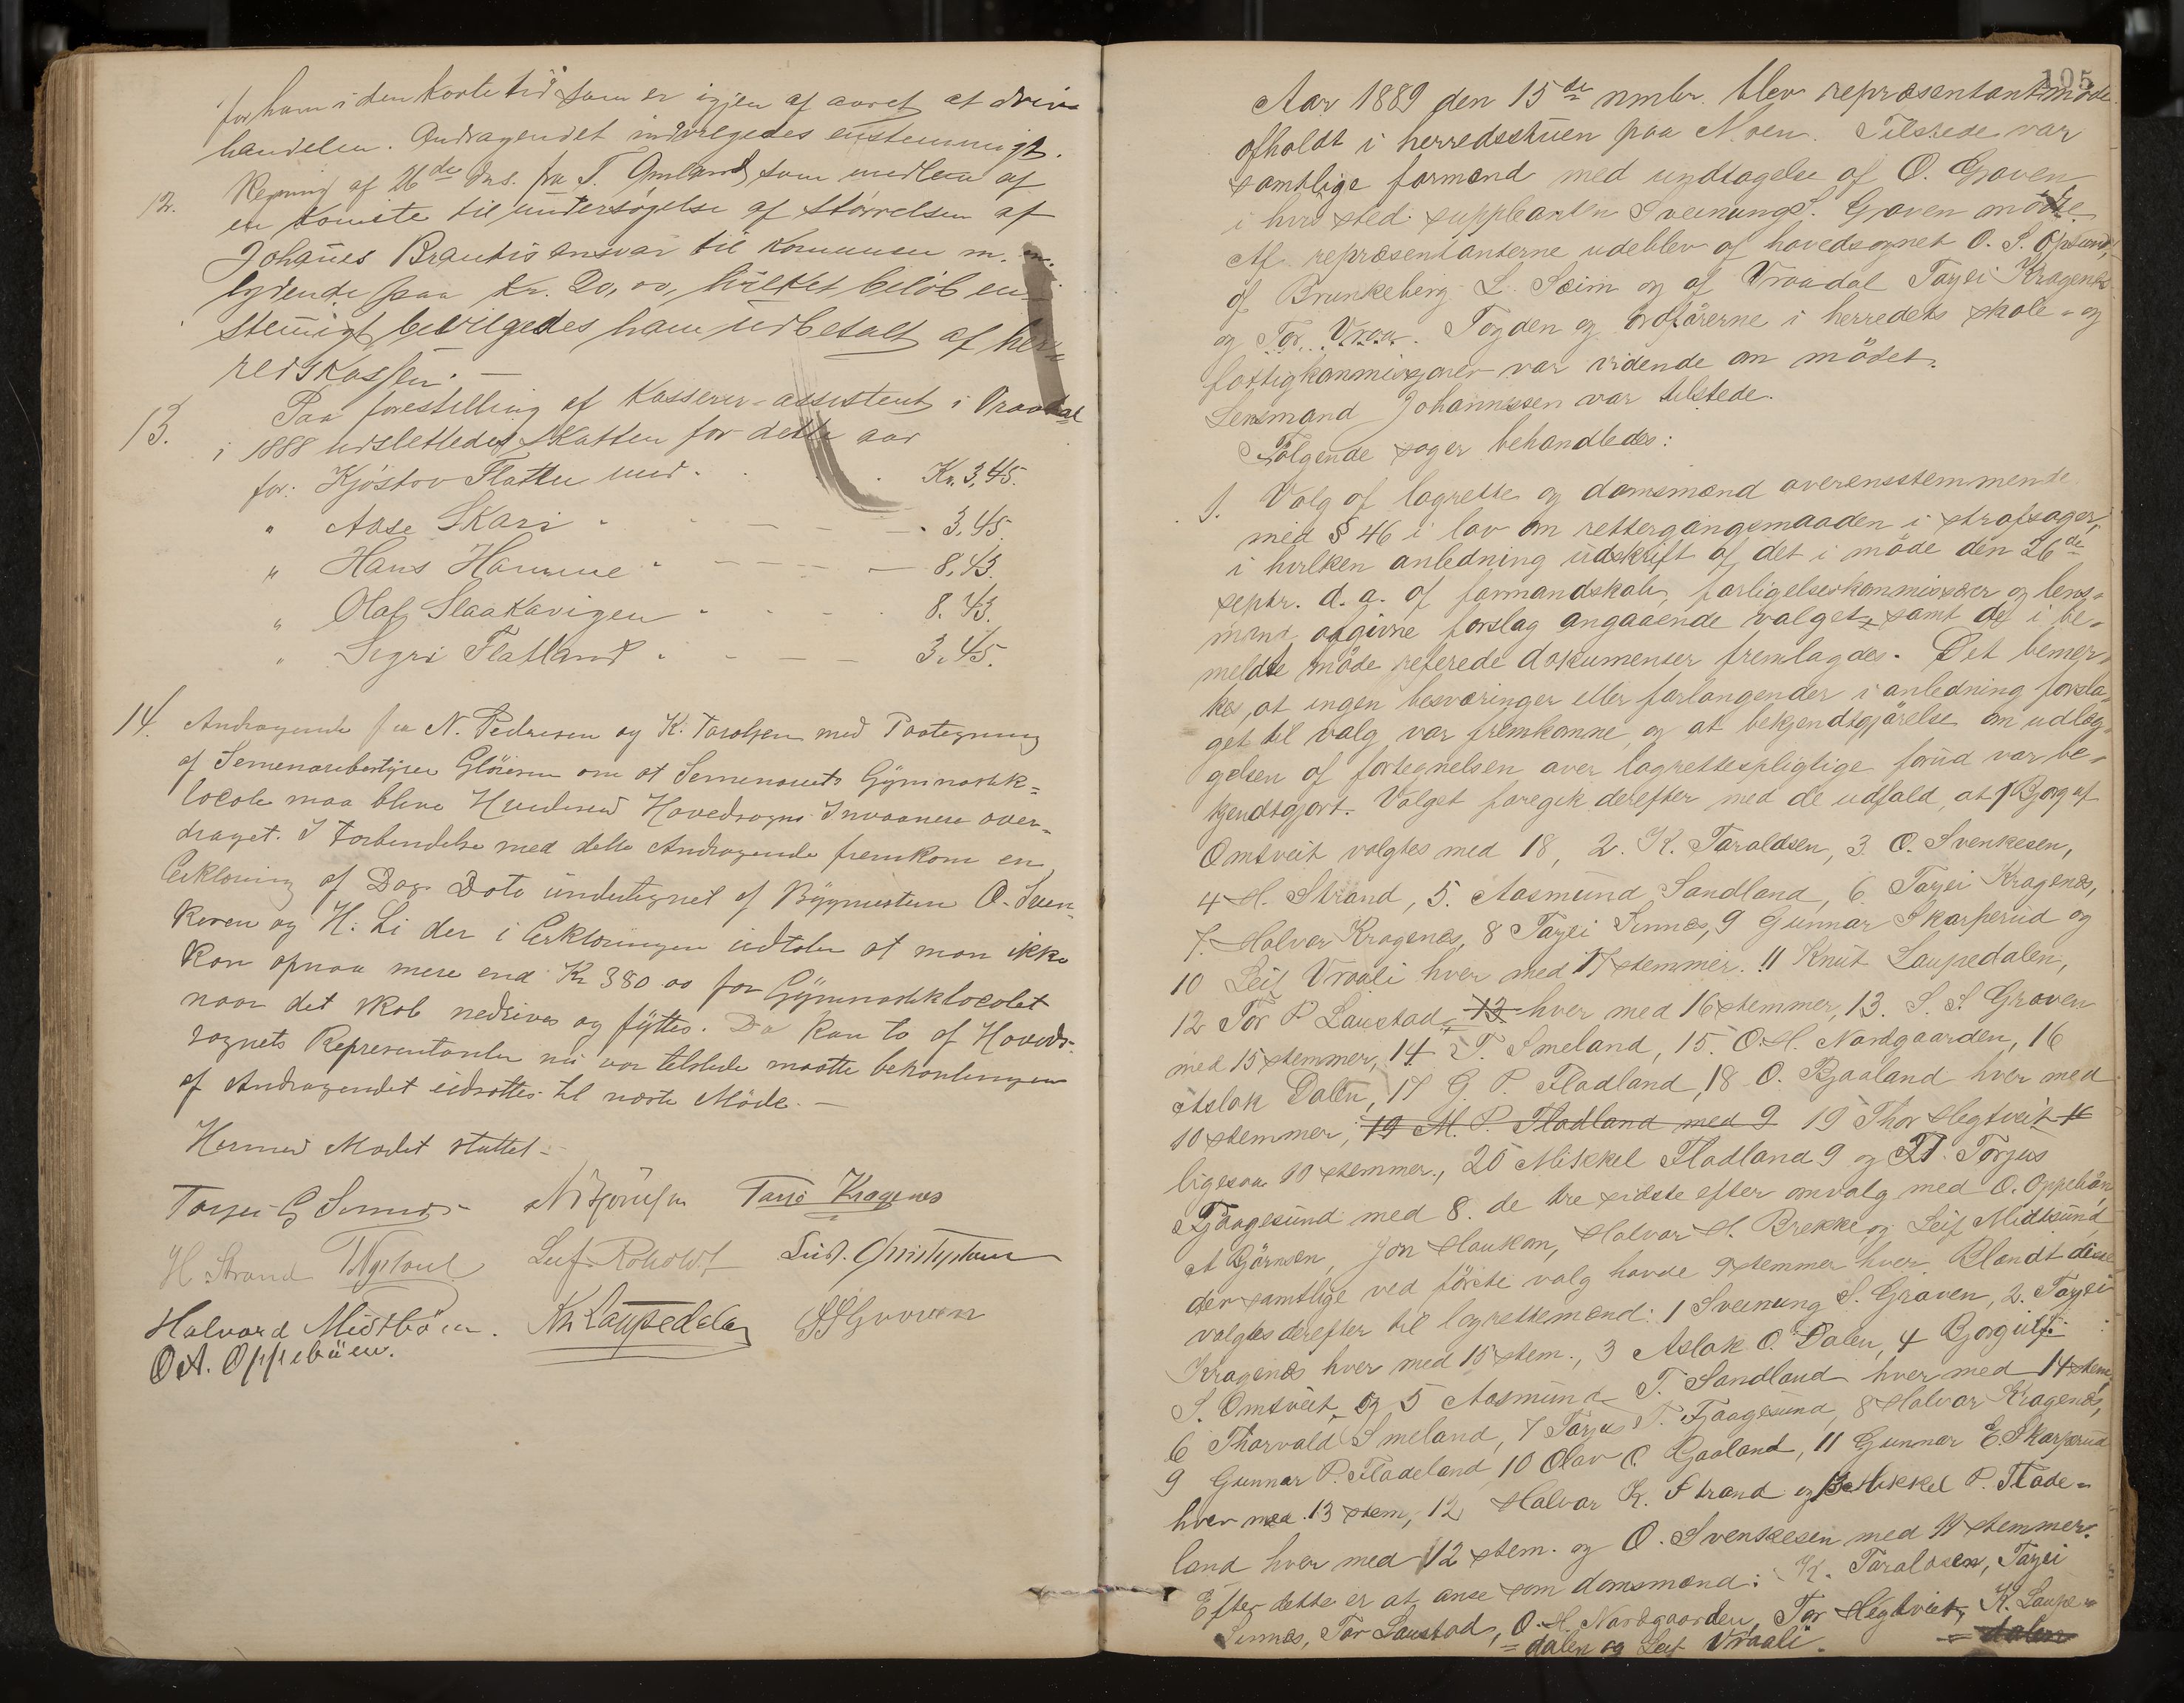 for ham i den korte tid som er igjen af aaret at drive
handelen. Andragendet indvilgedes enstemmigt.
12. Regning af 26de ds. fra T. Omland som medlem af
en komite til undersøgelse af størrelsen af
Johanes Brautis ansvar til kommunen m. m.
lydende paa Kr. 20,00, hvilket beløb en-
stemigt bevilgedes ham udbetalt af her=
redskassen. —
13. Paa forestilling af Kasserer-assistent i Vraadal
i 1888 udslettedes skatten for dette aar
for: Kjøstov Flatte med . . . Kr. 3,45.
" Aase Skari " - - - 3,45.
" Hans Hamme " - - - 8,43.
" Olaf Slaakavigen " - - 8.43.
" Sigri Flatland " - - - 3.45.
14. Andragende fra N. Pedersen og K. Taraldsen med Paategning
af Semenariebestyrer Gløersen om at Semenariets Gÿmnastik=
locale maa blive Hvideseid Hovedsogns Invaanere over=
draget. I Forbindelse med dette Andragende fremkom en
Erklæring af Dags Dato undertegnet af Bygmestrene O. Sven-
keren og H. Li der i Erklæringen udtaler at man ikke
kan opnaa mere end Kr 380 00 for Gÿmnastiklocalet
naar det skal nedrives og fÿttes. Da kun to af Hoveds-
sognets Representanter nu var tilstede maatte behandlingen
af Andragendet udsættes til næste Møde. —
Hermed Mødet sluttet —
Tarjei G Sinnes N Bjørnsen Tarjei Kragenes
H Strand Leif Roholdt Lud. Christensen
Halvard Midtbøen. Kn Laupedalen S S Graven
O A. Oppebøen.
105
Aar 1889 den 15de nmbr. blev repræsentantmøde
afholdt i herredsstuen paa N.øen. Tilstede var
samtlige formænd med undtagelse af O. Graven
i hvis sted suppleanten Sveinung S. Graven mødte.
Af repræsentanterne udeblev af hovedsognet O. S. Opsund,
af Brunkeberg L. Seim og af Vraadal Tarjei Kragenes
og Tor Vraa. Fogden og ordførerne i herredets skole- og
fattigkommissioner var vidende om mødet.
Lensmand Johannessen var tilstede.
Følgende sager behandledes:
1. Valg af lagrette og domsmænd overensstemmende
med § 46 i lov om rettergangsmaaden i strafsager,
i hvilken anledning udskrift af det i møde den 26de
septr. d. a. af formandskab, forligelseskommissær og lens-
mand afgivne forslag angaaende valget, samt de i be-
meldte møde refererede dokumenter fremlagdes. Det bemer-
kes, at ingen besværinger eller forlangender i anledning forsla-
get til valg var fremkomne, og at bekjendtgjørelse om udlæg-
gelsen af fortegnelsen over lagrettespligtige forud var be-
kjendtgjort. Valget foregik derefter med de udfald, at 1 Bjorguf
Omtveit valgtes med 18, 2. K. Taraldsen, 3. O. Svenkesen,
4 H. Strand, 5. Aasmund Sandland, 6. Tarjei Kragenæs,
7. Halvor Kragenæs, 8 Tarjei Sinnes, 9 Gunnar Skarperud og
10 Leif Vraali hver med 17 stemmer. 11 Knut Laupedalen,
12 Tor P Laustad, 13 hver med 16 stemmer, 13. S. S. Graven
med 15 stemmer, 14 T. Smeland, 15. O. H. Nordgaarden, 16
Aslak Dalen, 17 G. P. Fladland, 18 O. Bjaaland hver med
10 stemmer, 19 M. P. Fladland med 9 19 Thor Hegtveit
ligesaa 10 stemmer, 20 Mikkel Fladland 9 og 21 Torjus
Fjaagesund med 8. de tre sidste efter omvalg med O. Oppebøen,
A Bjørnsen, Jon Haukom, Halvor H. Brekke og Leif Midtsund,
der samtlige ved første valg havde 9 stemmer hver. Blandt disse
valgtes derefter til lagrettemænd: 1 Sveinung S. Graven, 2. Tarjei
Kragenæs hver med 15 stem., 3 Aslak O. Dalen, 4 Bjorgulf
S. Omtveit og 5 Aasmund T. Sandland hver med 14 stem,
6 Thorvald Smeland, 7 Torjus T. Fjaagesund, 8 Halvor Kragenæs,
9 Gunnar P. Fladeland, 10 Olav O Gaaland, 11 Gunnar E. Skarperud
hver med 13 stem, 12 Halvor K. Strand og 13 Mikkel P. Flade-
land hver med 12 stem. og O. Svenkesen med 11 stemmer.
Efter dette er at anse som domsmænd: K. Taraldsen, Tarjei
Sinnes, Tor Laustad, O. H. Nordgaarden, Tor Hegtveit, K. Laupe-
dalen og Leif Vraali.